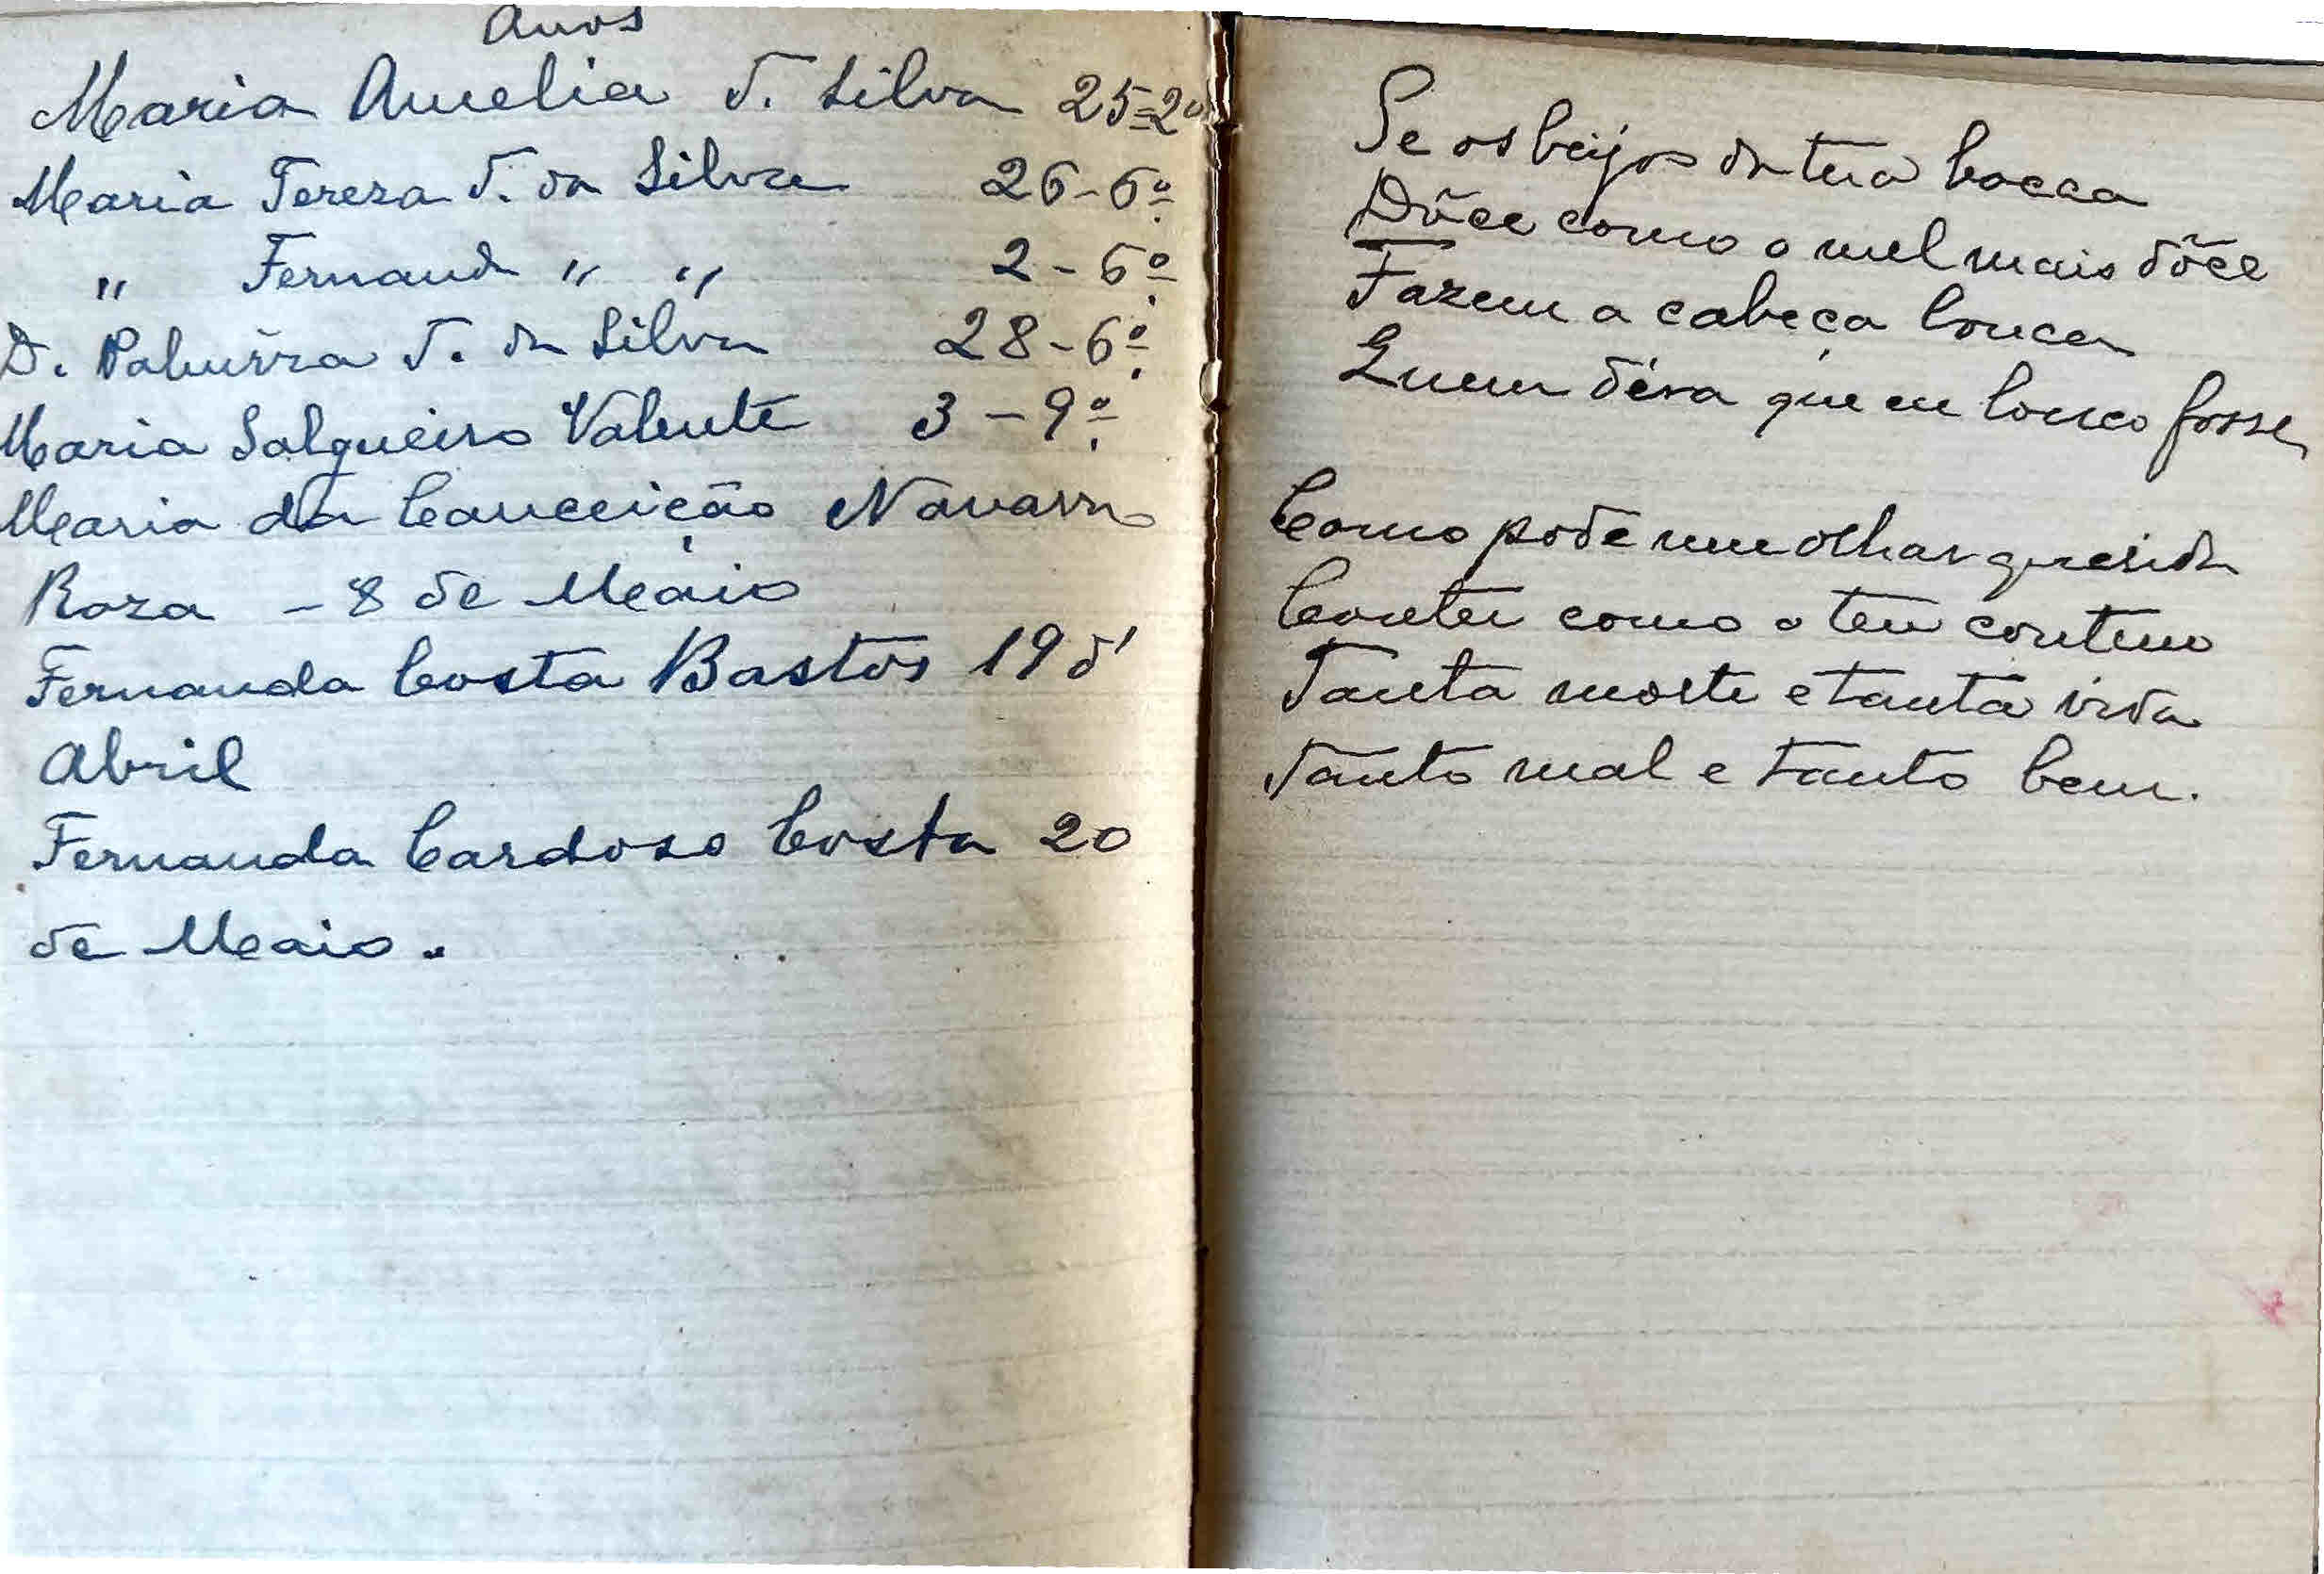 Anos
Maria Amelia T. Silva 25=2º
Maria Tereza T. da Silva 26-6º
" Fernanda " " 2-6º
D. T. da Silva 28-6º
Maria Salgueiro Valente 3-9º
Maria da Conceição Navarro
Roza - 8 de Maio
Fernanda Costa Bastos 19 d'
Abril
Fernanda Cardoso Costa 20
de Maio.
Se os beijos da tua bocca
Dôce como o mel mais dôce
Fazem a cabeça louca
Quem déra que eu louco fosse
Como pode um olhar querida
Conter como o teu contem
Tanta morte e tanta vida
Tanto mal e tanto bem.